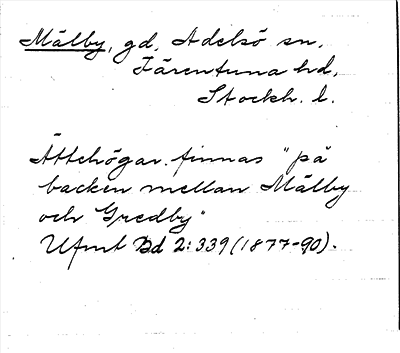 Mälby, gd, Adelsö sn,
Färentuna hd,
Stockh. l.
Ättehögar finnas "på
backen mellan Mälby
och Gredby"
Ufmt Bd 2:339 (1877-90).